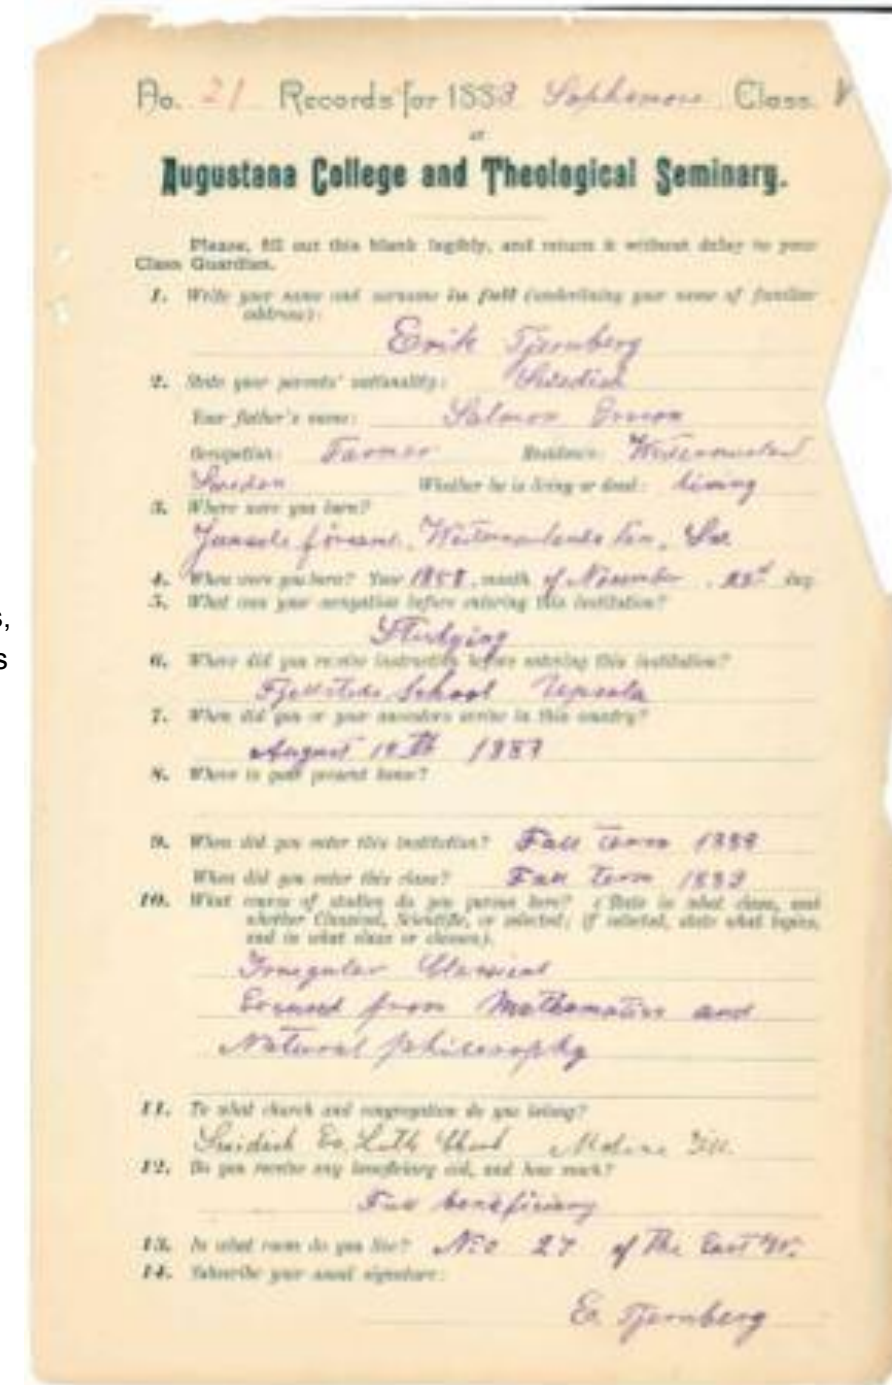 No. 21 Records for 1883 Sophomore Class.
at
Augustana College and Theological Seminary.
Please, fill out this blank legibly, and return it without delay to your
Class Guardian.
1. Write your name and surname in full (underlining your name of familiar
address):
Erik Tjernberg
2. State your parents' nationality: Swedish
Your father's name: Salmon
Occupation: Farmer Residence:
Sweden Whether he is living or dead: living
3. Where were you born?
4. When were you born? Year 1858, month of November, day
5. What was your occupation before entering this institution?
Studying
6. Where did you receive instruction before entering this institution?
Fjellstedts School Upsala
7. When did you or your ancestors arrive in this country?
August
8. Where is your present home?
9. When did you enter this institution? Fall term
When did you enter this class? Fall Term
10. What course of studies do you pursue here? (State in what class, and
whether Classical, Scientific, or selected; if selected, state what topics,
and in what class or classes).
Irregular Classical
from Mathematics and
Natural philosophy
11. To what church and congregation do you belong?
Swedish Ev. Luth Moline Ill.
12. Do you receive any beneficiary aid, and how much?
beneficiary
13. In what room do you live? No 27 of the East
14. Subscribe your usual signature:
Er. Tjernberg
s,
s